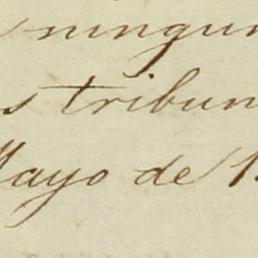 ningun
s tribun
Mayo de 1